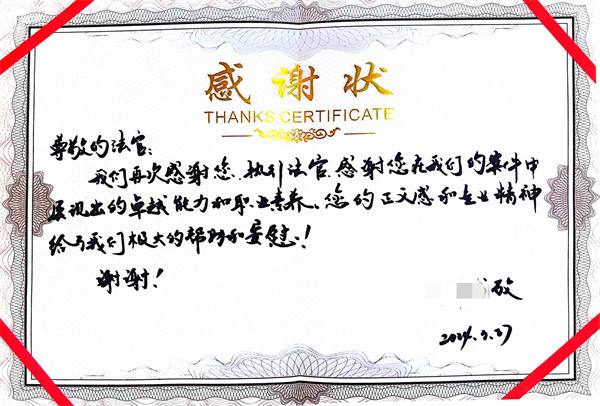 感谢状
THANKS CERTIFICATE
尊敬的法官:
我们再次感谢您,执行法官,感谢您在我们的案件中
展现出的卓越能力和职业素养、您的正义感和专业精神
给了我们极大的帮助和安慰!
谢谢!
敬
2024.3.27